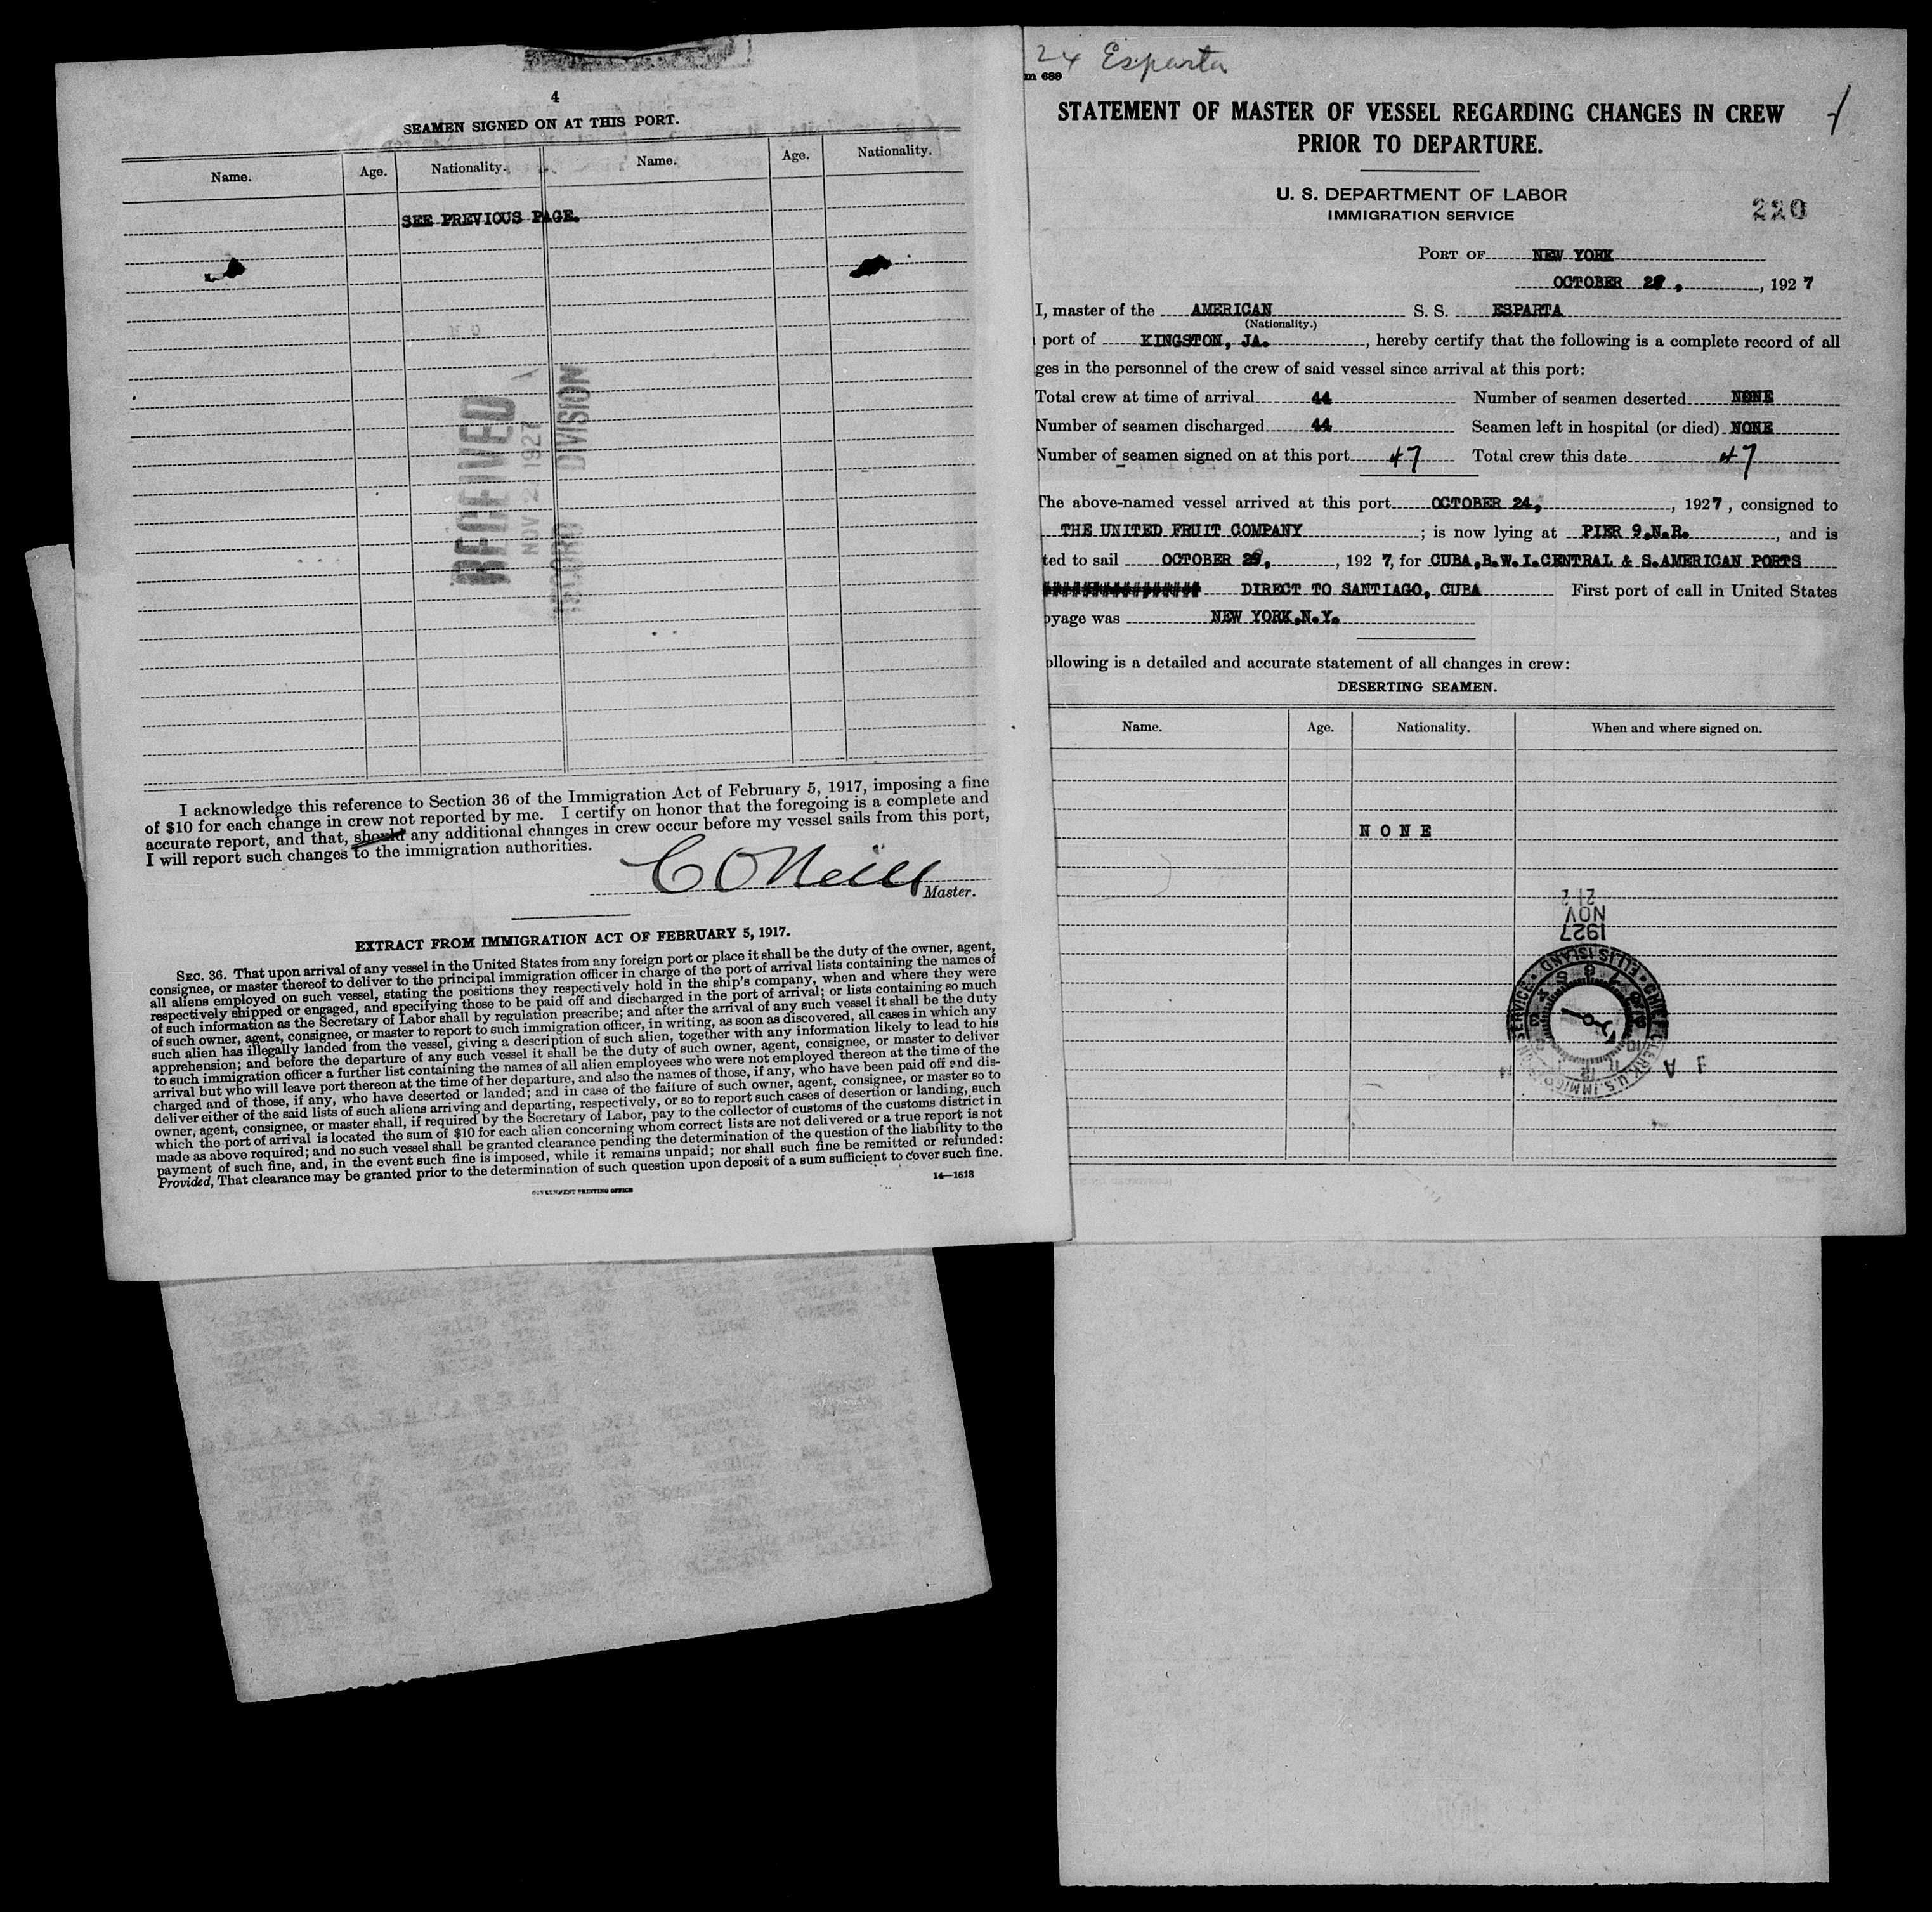 4
SEAMEN SIGNED ON AT THIS PORT.
Name. Age. Nationality. Name. Age. Nationality.
SEE PREVIOUS PAGE.
RECEIVED
NOV 2 1927
RECORD DIVISION
I acknowledge this reference to Section 36 of the Immigration Act of February 5, 1917, imposing a fine
of $10 for each change in crew not reported by me. I certify on honor that the foregoing is a complete and
accurate report, and that, should any additional changes in crew occur before my vessel sails from this port,
I will report such changes to the immigration authorities.
C O'Neill
Master.
EXTRACT FROM IMMIGRATION ACT OF FEBRUARY 5, 1917.
SEC. 36. That upon arrival of any vessel in the United States from any foreign port or place it shall be the duty of the owner, agent,
consignee, or master thereof to deliver to the principal immigration officer in charge of the port of arrival lists containing the names of
all aliens employed on such vessel, stating the positions they respectively hold in the ship's company, when and where they were
respectively shipped or engaged, and specifying those to be paid off and discharged in the port of arrival; or lists containing so much
of such information as the Secretary of Labor shall by regulation prescribe; and after the arrival of any such vessel it shall be the duty
of such owner, agent, consignee, or master to report to such immigration officer, in writing, as soon as discovered, all cases in which any
such alien has illegally landed from the vessel, giving a description of such alien, together with any information likely to lead to his
apprehension; and before the departure of any such vessel it shall be the duty of such owner, agent, consignee, or master to deliver
to such immigration officer a further list containing the names of all alien employees who were not employed thereon at the time of the
arrival but who will leave port thereon at the time of her departure, and also the names of those, if any, who have been paid off and dis-
charged and of those, if any, who have deserted or landed; and in case of the failure of such owner, agent, consignee, or master so to
deliver either of the said lists of such aliens arriving and departing, respectively, or so to report such cases of desertion or landing, such
owner, agent, consignee, or master shall, if required by the Secretary of Labor, pay to the collector of customs of the customs district in
which the port of arrival is located the sum of $10 for each alien concerning whom correct lists are not delivered or a true report is not
made as above required; and no such vessel shall be granted clearance pending the determination of the question of the liability to the
payment of such fine, and, in the event such fine is imposed, while it remains unpaid; nor shall such fine be remitted or refunded:
Provided, That clearance may be granted prior to the determination of such question upon deposit of a sum sufficient to cover such fine.
14—1613
GOVERNMENT PRINTING OFFICE
24 Esparta
m 689
STATEMENT OF MASTER OF VESSEL REGARDING CHANGES IN CREW
PRIOR TO DEPARTURE.
U. S. DEPARTMENT OF LABOR
IMMIGRATION SERVICE
220
PORT OF NEW YORK
OCTOBER 29, , 1927
I, master of the AMERICAN S. S. ESPARTA
(Nationality.)
port of KINGSTON, JA. , hereby certify that the following is a complete record of all
ges in the personnel of the crew of said vessel since arrival at this port:
Total crew at time of arrival 44 Number of seamen deserted NONE
Number of seamen discharged 44 Seamen left in hospital (or died) NONE
Number of seamen signed on at this port 47 Total crew this date 47
The above-named vessel arrived at this port OCTOBER 24, , 1927, consigned to
THE UNITED FRUIT COMPANY ; is now lying at PIER 9,N.R. , and is
ted to sail OCTOBER 29, , 1927, for CUBA,B.W.I.CENTRAL & S.AMERICAN PORTS
DIRECT TO SANTIAGO, CUBA First port of call in United States
oyage was NEW YORK,N.Y.
ollowing is a detailed and accurate statement of all changes in crew:
DESERTING SEAMEN.
Name. Age. Nationality. When and where signed on.
N O N E
NOV
1927
CHIEF CLERK, U.S. IMMIGRATION SERVICE · ELLIS ISLAND